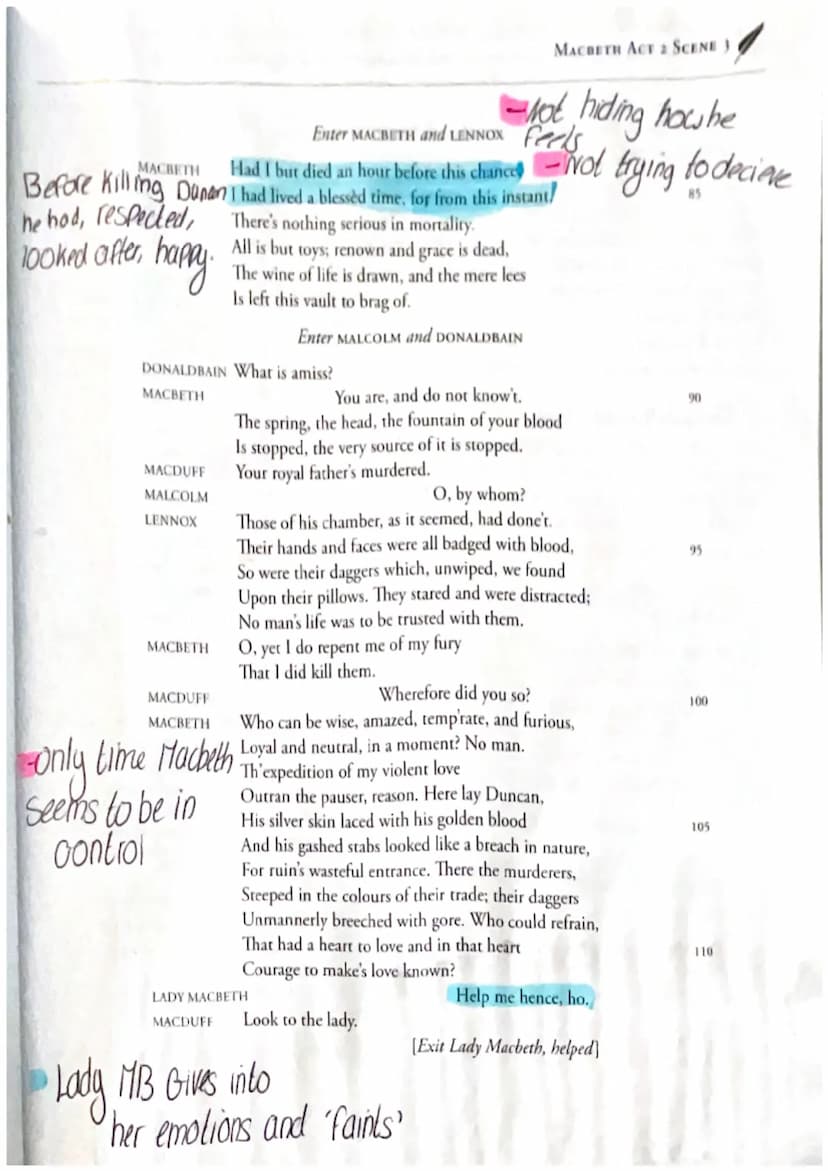 MACBETH ACT 2 SCENE 3
-Not hiding how he
feels
-Not trying to decieve
Enter MACBETH and LENNOX
MACBETH Had I but died an hour before this chance,
I had lived a blessèd time, for from this instant, 85
There's nothing serious in mortality.
All is but toys; renown and grace is dead,
The wine of life is drawn, and the mere lees
Is left this vault to brag of.
Before Killing Dunan
he had, respected,
looked after, happy.
Enter MALCOLM and DONALDBAIN
DONALDBAIN What is amiss?
MACBETH You are, and do not know't. 90
The spring, the head, the fountain of your blood
Is stopped, the very source of it is stopped.
MACDUFF Your royal father's murdered.
MALCOLM O, by whom?
LENNOX Those of his chamber, as it seemed, had done't.
Their hands and faces were all badged with blood, 95
So were their daggers which, unwiped, we found
Upon their pillows. They stared and were distracted;
No man's life was to be trusted with them.
MACBETH O, yet I do repent me of my fury
That I did kill them.
MACDUFF Wherefore did you so? 100
MACBETH Who can be wise, amazed, temp'rate, and furious,
Loyal and neutral, in a moment? No man.
Th'expedition of my violent love
Outran the pauser, reason. Here lay Duncan,
His silver skin laced with his golden blood 105
And his gashed stabs looked like a breach in nature,
For ruin's wasteful entrance. There the murderers,
Steeped in the colours of their trade; their daggers
Unmannerly breeched with gore. Who could refrain,
That had a heart to love and in that heart 110
Courage to make's love known?
-only time Macbeth
seems to be in
control
LADY MACBETH Help me hence, ho.
MACDUFF Look to the lady.
[Exit Lady Macbeth, helped]
Lady MB Gives into
her emotions and 'faints'